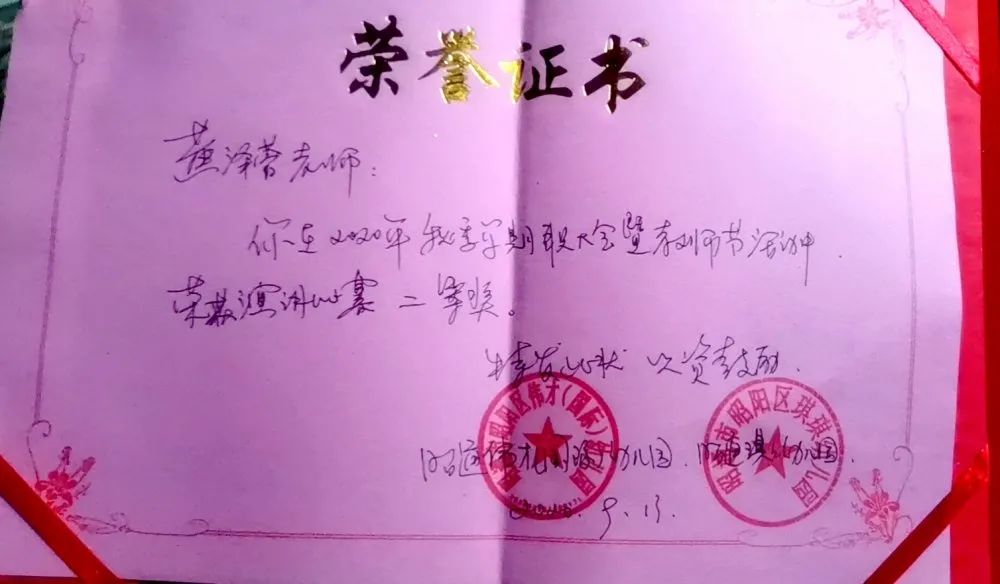 荣誉证书
老师：
你在2020年秋季学期职大会暨教师节活动中
荣获演讲比赛二等奖。
特发此状 以资鼓励.
昭通伟才国际幼儿园. 昭通琪琪幼儿园.
9.13.
阳区伟才(国际)
昭阳区琪琪幼儿园